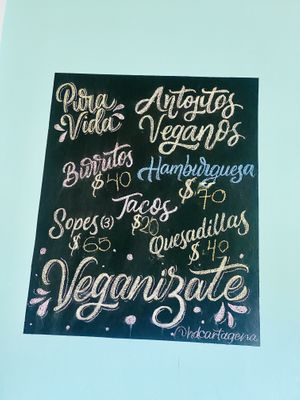 Pura
Vida
Antojitos
Veganos
Burritos
$40
Hamburguesa
$70
Tacos
$20
Sopes (3)
$65
Quesadillas
$40
Veganízate
@hdcartagena